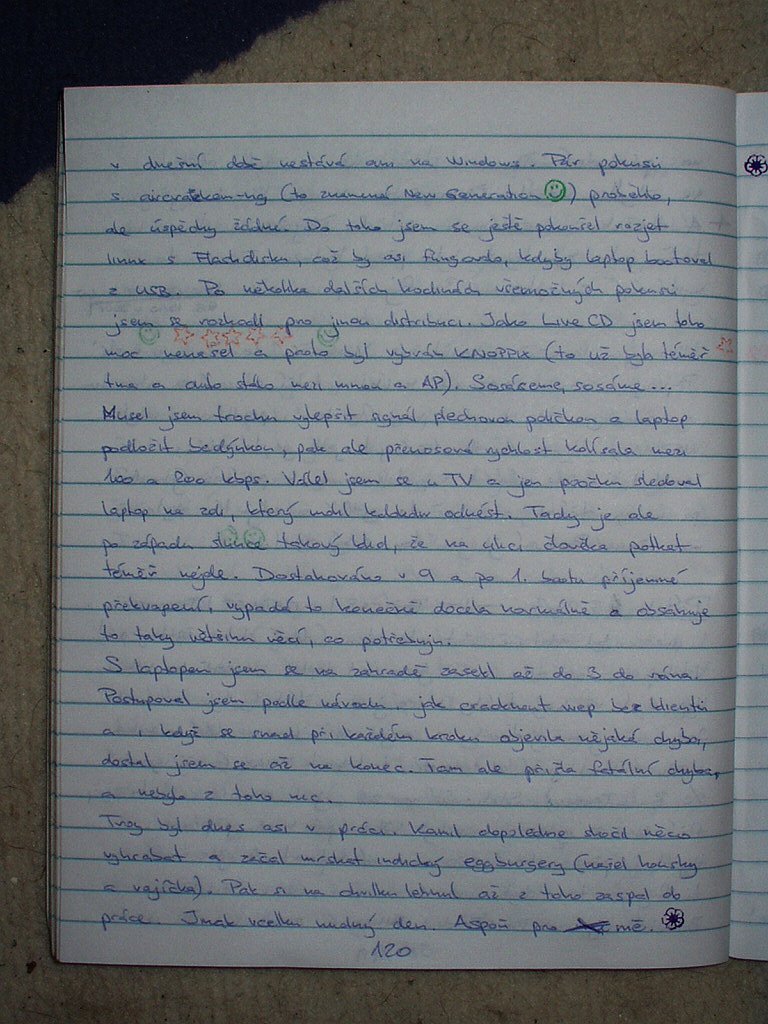 v dnešní době nestává ani na Windows. Pár pokusů
s aircrackem-ng (to znamená New Generation ☺) proběhlo,
ale úspěchy žádné. Do toho jsem se ještě pokoušel rozjet
linux s Flashdisku, což by asi fungovalo, kdyby laptop bootoval
z USB. Po několika dalších hodinách všemožných pokusů
jsem se rozhodl pro jinou distribuci. Jako Live CD jsem toho
moc nenašel a proto byl vybrán KNOPPIX (to už byla téměř
tma a auto stálo mezi mnou a AP). Sosáseme, sosáme...
Musel jsem trochu vylepšit signál plechovou poličkou a laptop
podložit bedýnkou, pak ale přenosová rychlost kolísala mezi
100 a 200 kbps. Vrátil jsem se u TV a jen sledoval
laptop na zdi, který mohl kdokoliv odnést. Tady je ale
po západu slunce takový klid, že na ulici človíčka potkat
téměř nejde. Dostahováno v 9 a po 1. bootu příjemné
překvapení, vypadá to konečně docela normálně a obsahuje
to taky většinu věcí, co potřebuju.
S laptopem jsem se na zahradě zasekl až do 3 do rána.
Postupoval jsem podle návodu, jak cracknout wep bez klientů
a i když se snad při každém kroku objevila nějaká chyba,
dostal jsem se až na konec. Tam ale přišla fatální chyba,
a nebylo z toho nic.
Tvoy byl dnes asi v práci. Kamil dopoledne skočil něco
vyhrabat a začal mrskat indický eggburgery (našel housky
a vajíčka). Pak si na chvilku lehnul až z toho zaspal do
práce. Jinak vcelku nudný den. Aspoň pro mě.
120